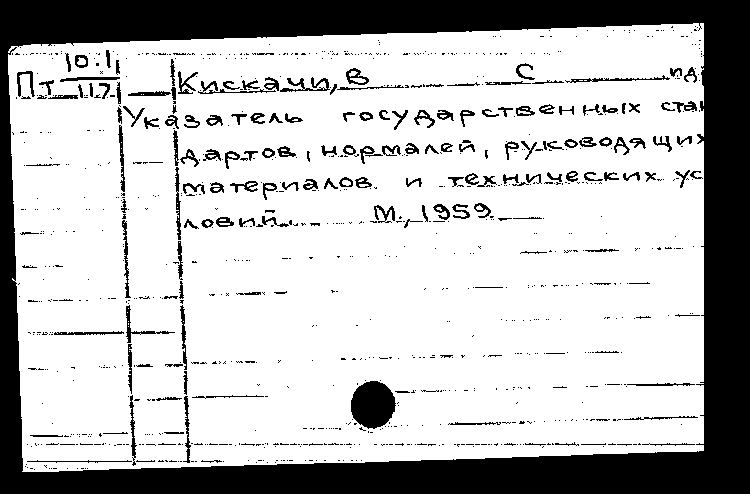 10.1
Пт 117 Кискачи, В С ид
Указатель государственных стан
дартов, нормалей, руководящих
материалов и технических ус
ловий. М., 1959